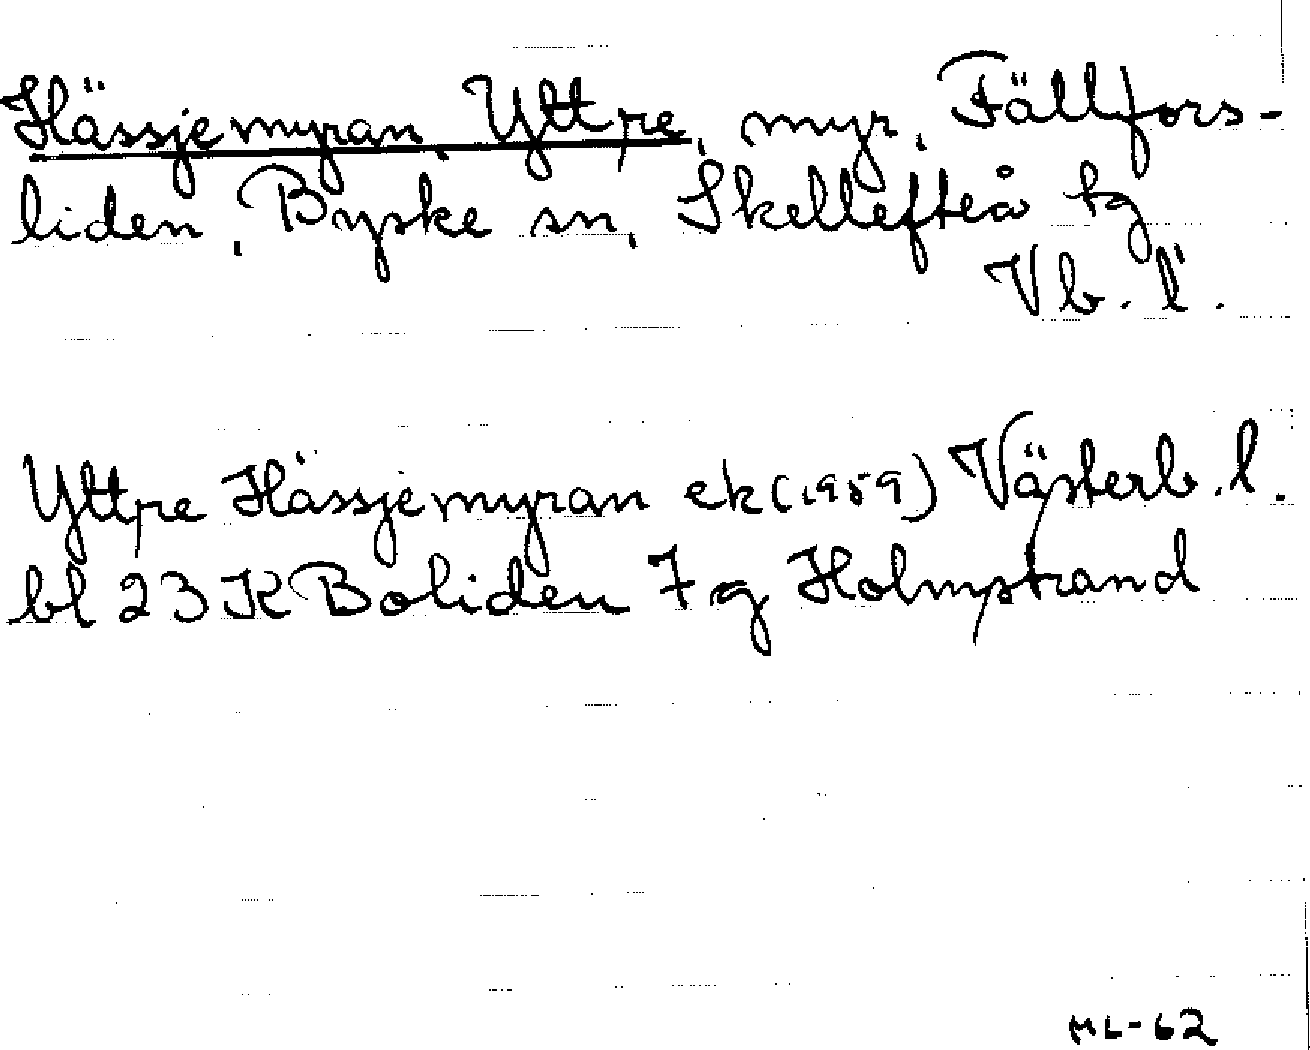 Hässjemyran, Yttre, myr, Fällfors-
liden, Byske sn, Skellefteå tg
Vb. l.
Yttre Hässjemyran ek (1959) Västerb. l.
bl 23 K Boliden 7 g Holmstrand
ML-62